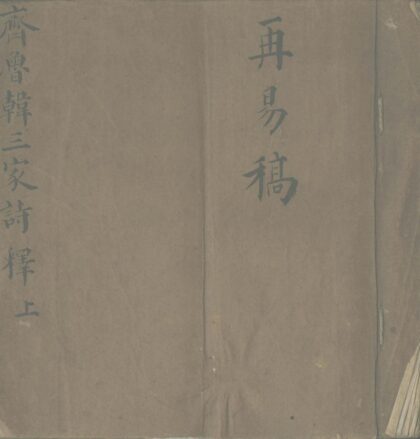 再易稿
齊魯韓三家詩釋上